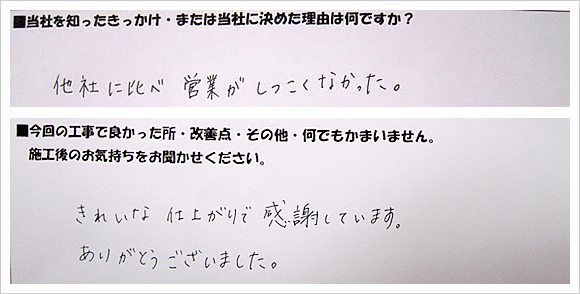 ■当社を知ったきっかけ・または当社に決めた理由は何ですか？
他社に比べ 営業がしつこくなかった。
■今回の工事で良かった所・改善点・その他・何でもかまいません。
施工後のお気持ちをお聞かせください。
きれいな 仕上がりで 感謝しています。
ありがとうございました。